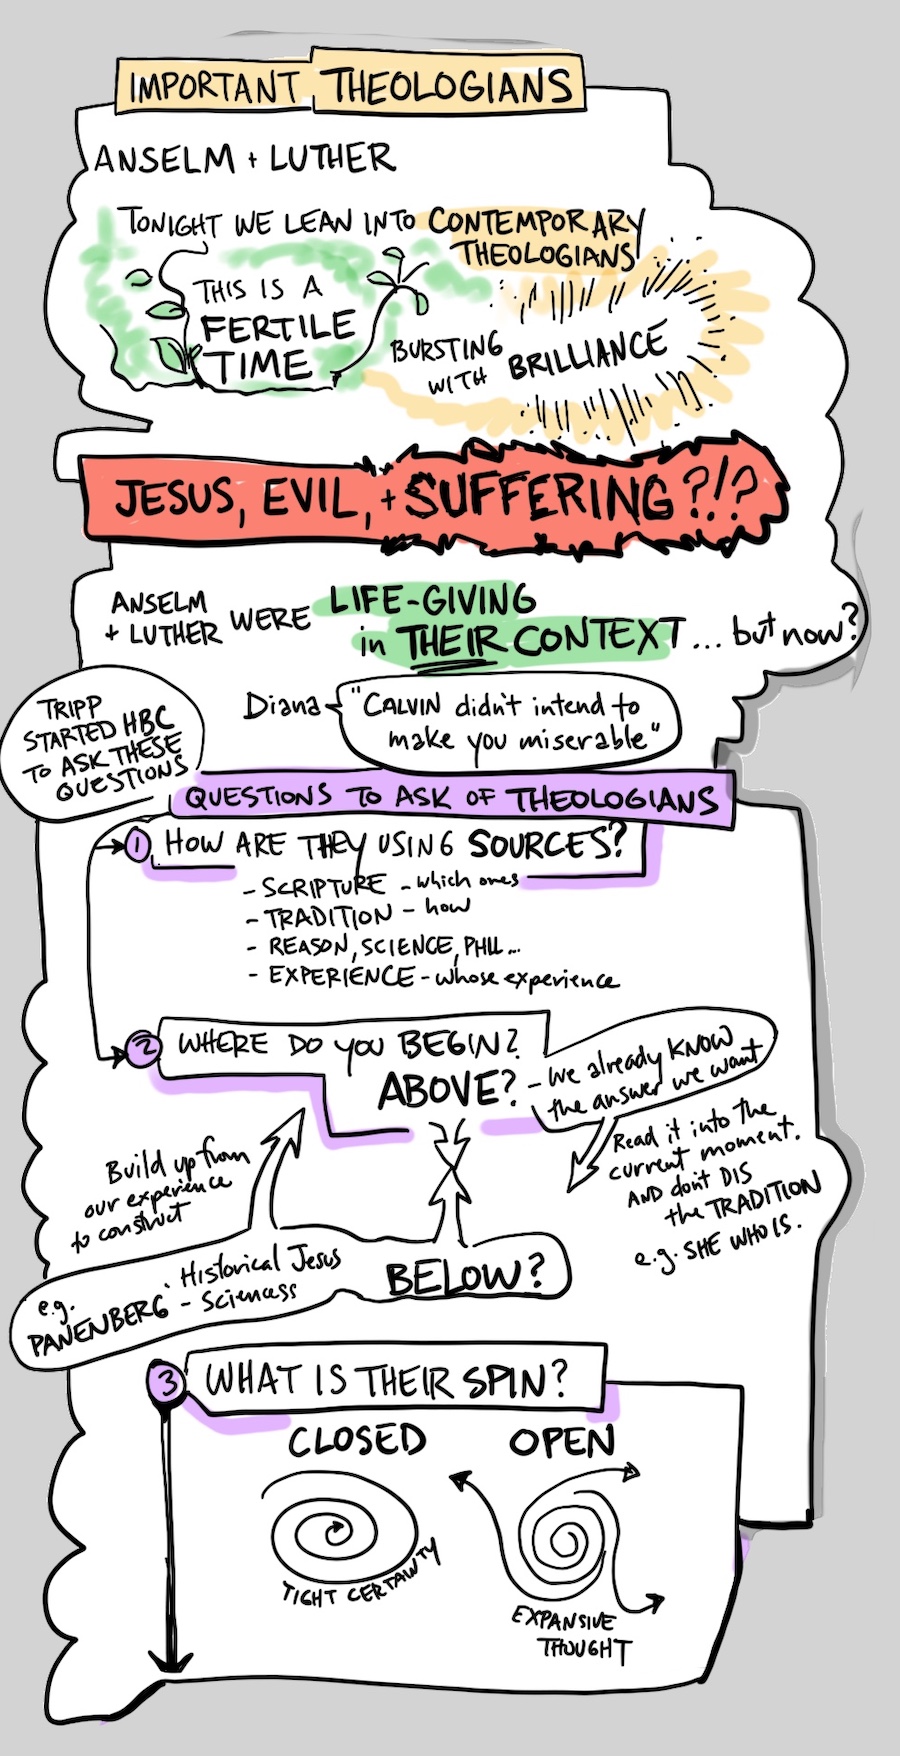 IMPORTANT THEOLOGIANS
ANSELM + LUTHER
TONIGHT WE LEAN INTO CONTEMPORARY
THEOLOGIANS
THIS IS A
FERTILE
TIME
BURSTING
WITH BRILLIANCE
JESUS, EVIL, + SUFFERING?!?
ANSELM
+ LUTHER WERE LIFE-GIVING
in THEIR CONTEXT ... but now?
TRIPP
STARTED HBC
TO ASK THESE
QUESTIONS
Diana "CALVIN didn't intend to
make you miserable"
QUESTIONS TO ASK OF THEOLOGIANS
1 HOW ARE THEY USING SOURCES?
- SCRIPTURE - which ones
- TRADITION - how
- REASON, SCIENCE, PHIL...
- EXPERIENCE - whose experience
2 WHERE DO YOU BEGIN?
ABOVE? - We already KNOW
the answer we want
Read it into the
current moment.
AND don't DIS
the TRADITION
e.g. SHE WHO IS.
Build up from
our experience
to construct
BELOW?
e.g.
PANENBERG
Historical Jesus
- Sciencess
3 WHAT IS THEIR SPIN?
CLOSED
TIGHT CERTAINTY
OPEN
EXPANSIVE
THOUGHT